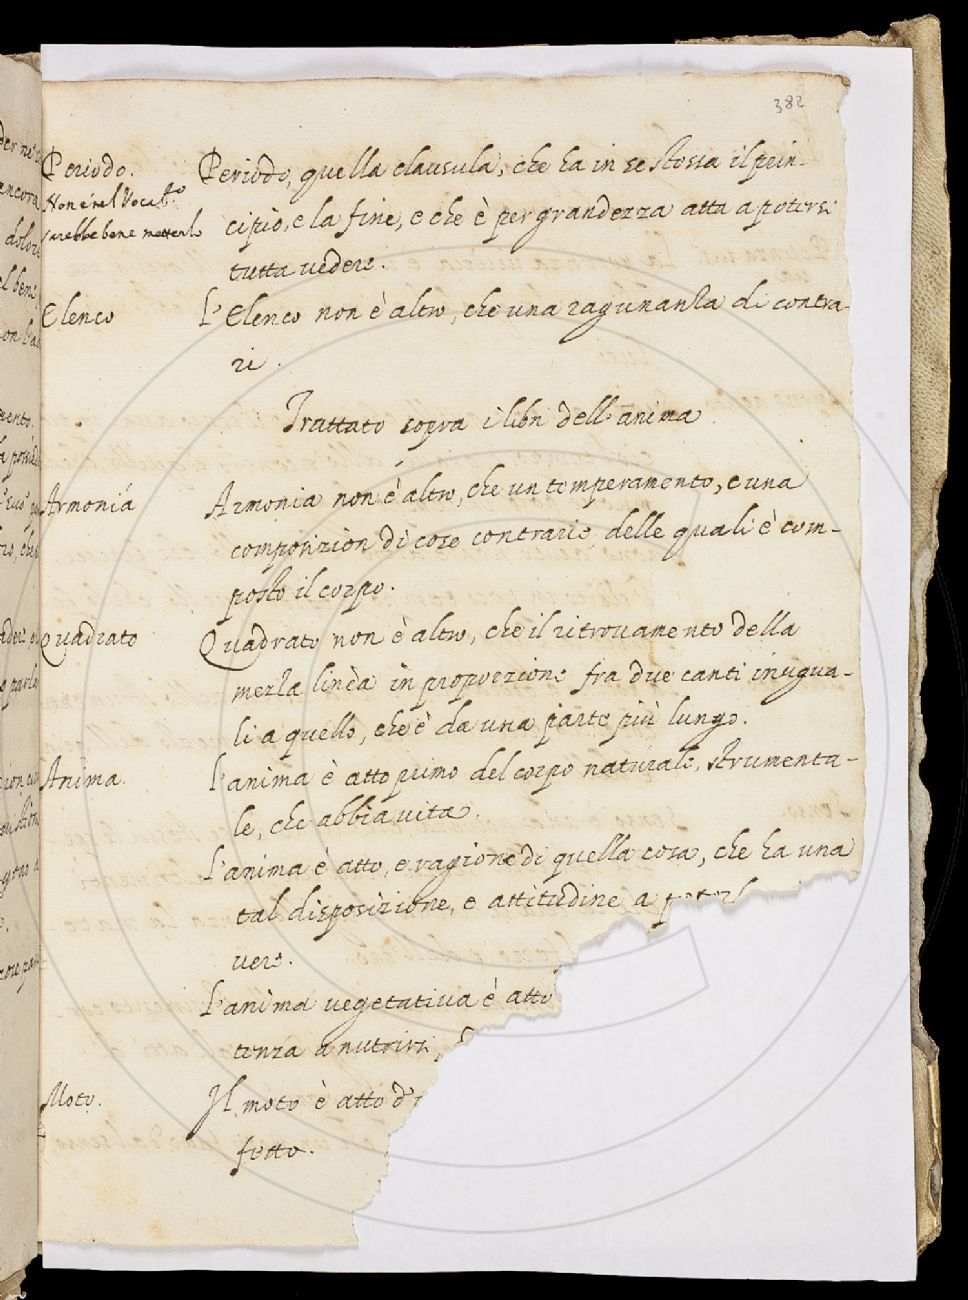 382
Periodo. Periodo, quella clausula, che ha in se stessa il prin-
Non è nel Vocab.o
sarebbe bene metterlo cipio, e la fine, e che è per grandezza atta a potersi
tutta vedere.
Elenco L'Elenco non è altro, che una ragunanza di contra-
ri.
Trattato sopra i libri dell'anima
Armonía Armonia non è altro, che un temperamento, e una
composizion di cose contrarie, delle quali è com-
posto il corpo.
Quadrato Quadrato non è altro, che il ritrovamento della
mezza linea in proporzione fra due canti inugua-
li a quello, che è da una parte più lungo.
Anima. L'anima è atto primo del corpo naturale, strumenta-
le, che abbia vita.
L'anima è atto, e ragione di quella cosa, che ha una
tal disposizione, e attitudine a
vere.
L'anima vegetativa è atto
tenza a nutrirsi,
Moto. Il moto è atto d'i
fetto.